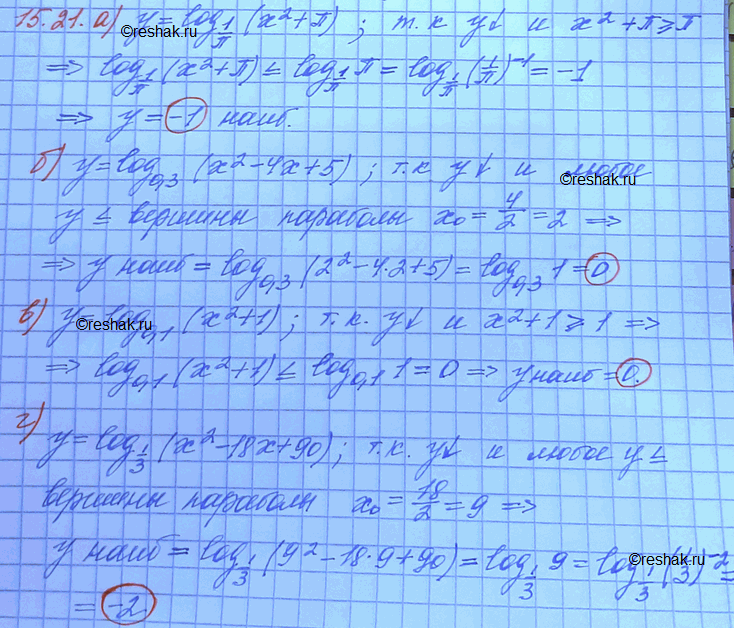 15.21. а) y = log_{1/π} (x² + π) ; т.к y↓ и x² + π ⩾ π
©reshak.ru
⇒ log_{1/π} (x² + π) ≤ log_{1/π} π = log_{1/π} (1/π)⁻¹ = -1
⇒ y = -1 наиб.
б) y = log_{0,3} (x² - 4x + 5) ; т.к y↓ и любое
©reshak.ru
y ≤ вершины параболы x₀ = 4/2 = 2 ⇒
⇒ y наиб = log_{0,3} (2² - 4·2 + 5) = log_{0,3} 1 = 0
в) y = log_{0,1} (x² + 1) ; т.к. y↓ и x² + 1 ⩾ 1 ⇒
©reshak.ru
⇒ log_{0,1} (x² + 1) ≤ log_{0,1} 1 = 0 ⇒ y наиб = 0.
г)
y = log_{1/3} (x² - 18x + 90) ; т.к. y↓ и любое y ≤
вершины параболы x₀ = 18/2 = 9 ⇒
y наиб = log_{1/3} (9² - 18·9 + 90) = log_{1/3} 9 = log_{1/3} (1/3)⁻² =
©reshak.ru
= -2